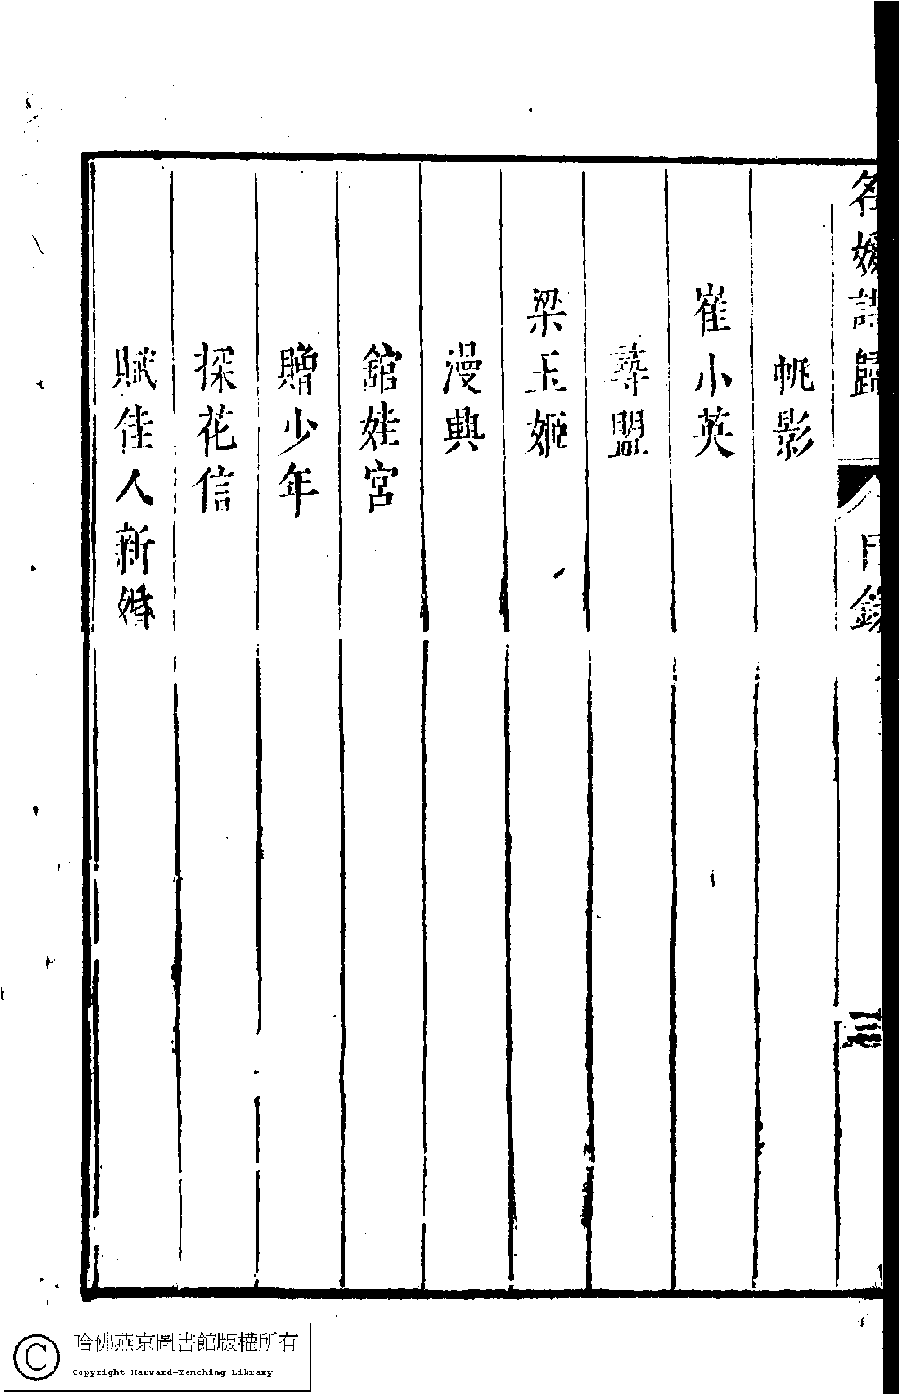 名媛詩歸
目錄
三
帆影
崔小英
尋盟
梁玉姬
漫興
舘娃宮
贈少年
探花信
賦佳人新婚
哈佛燕京圖書館版權所有
Copyright Harvard-Yenching Library